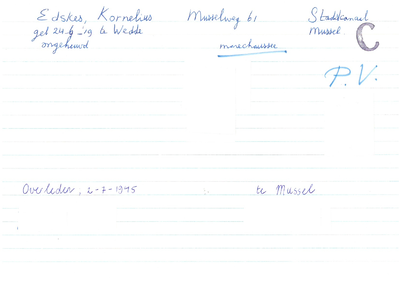 Edskes, Kornelius Musselweg 61 Stadskanaal
geb 24-9-'19 te Wedde Mussel. C
ongehuwd marechaussee
P.V.
Overleden, 2-7-1945 te Mussel